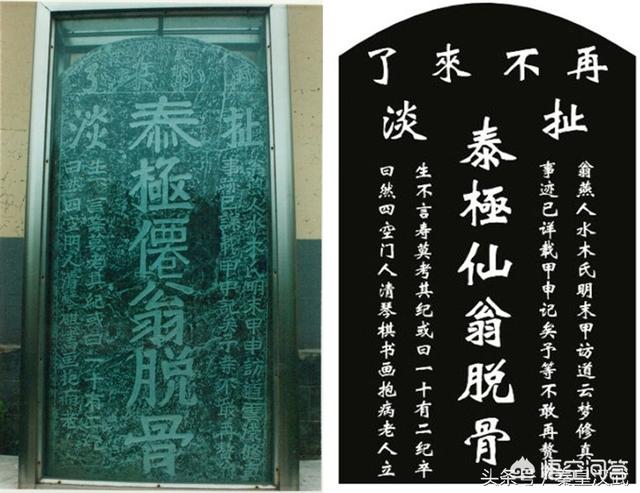 再不來了
扯淡
泰極僊翁脱骨
再不來了
扯淡
翁燕人水木氏明末甲访道云梦修真
事迹已详载甲申记矣予等不敢再
泰極仙翁脱骨
生不言寿莫考其纪或曰一十有二纪卒
曰然四空门人清琴棋书画抱病老人立
悟空问答
头条号/秦皇汉武